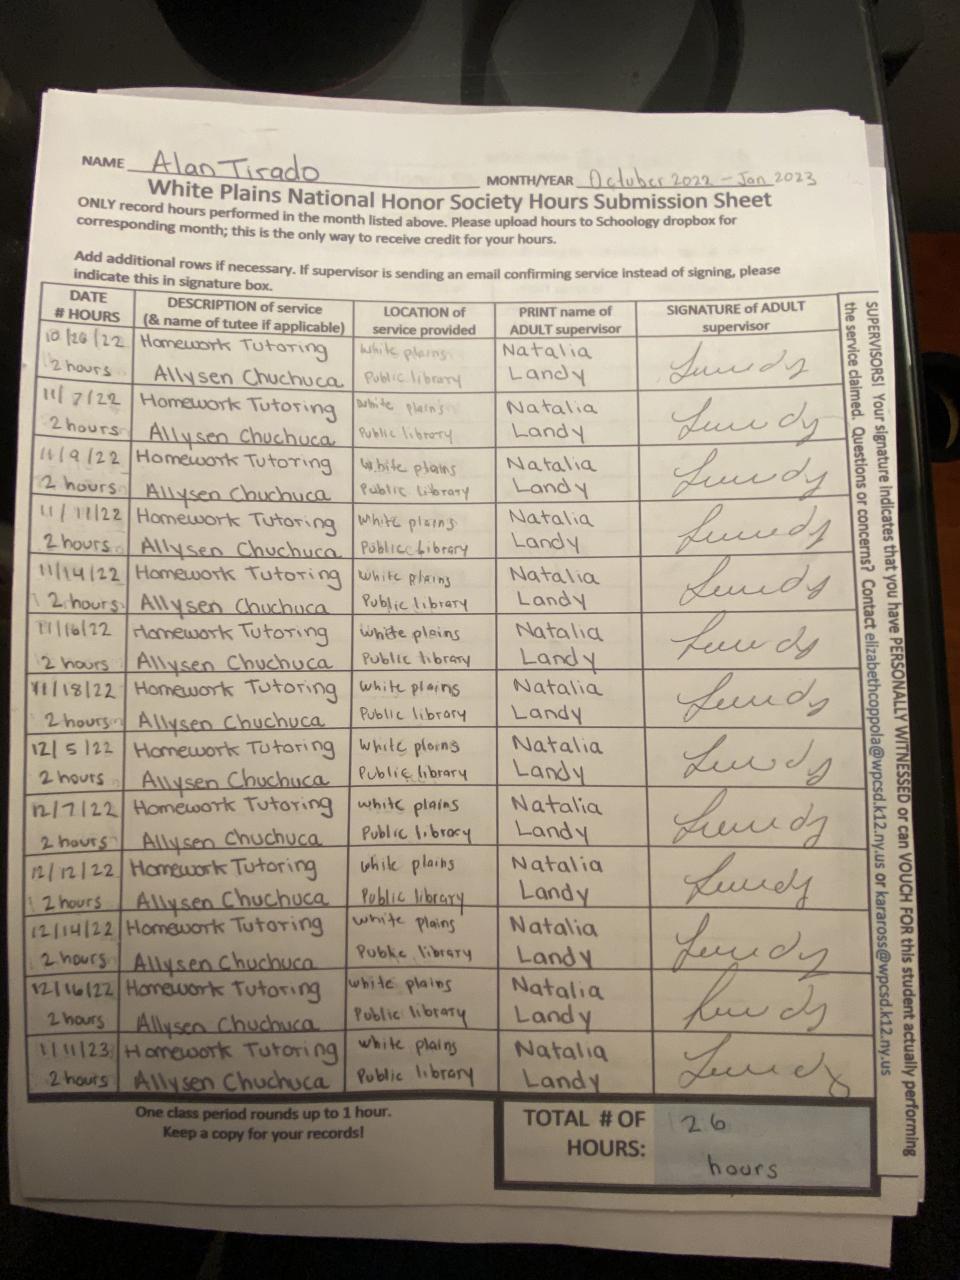 NAME Alan Tirado MONTH/YEAR October 2022 - Jan 2023
White Plains National Honor Society Hours Submission Sheet
ONLY record hours performed in the month listed above. Please upload hours to Schoology dropbox for
corresponding month; this is the only way to receive credit for your hours.
Add additional rows if necessary. If supervisor is sending an email confirming service instead of signing, please
indicate this in signature box.
DATE DESCRIPTION of service LOCATION of PRINT name of SIGNATURE of ADULT
# HOURS (& name of tutee if applicable) service provided ADULT supervisor supervisor
10/26/22 Homework Tutoring White plains Natalia
2 hours Allysen Chuchuca Public library Landy Landy
11/7/22 Homework Tutoring White plains Natalia
2 hours Allysen Chuchuca Public library Landy Landy
11/9/22 Homework Tutoring White plains Natalia
2 hours Allysen Chuchuca Public Library Landy Landy
11/11/22 Homework Tutoring White plains Natalia
2 hours Allysen Chuchuca Public Library Landy Landy
11/14/22 Homework Tutoring White plains Natalia
2 hours Allysen Chuchuca Public library Landy Landy
11/16/22 Homework Tutoring White plains Natalia
2 hours Allysen Chuchuca Public library Landy Landy
11/18/22 Homework Tutoring White plains Natalia
2 hours Allysen Chuchuca Public library Landy Landy
12/5/22 Homework Tutoring White plains Natalia
2 hours Allysen Chuchuca Public library Landy Landy
12/7/22 Homework Tutoring White plains Natalia
2 hours Allysen Chuchuca Public library Landy Landy
12/12/22 Homework Tutoring White plains Natalia
2 hours Allysen Chuchuca Public library Landy Landy
12/14/22 Homework Tutoring White plains Natalia
2 hours Allysen Chuchuca Public library Landy Landy
12/16/22 Homework Tutoring White plains Natalia
2 hours Allysen Chuchuca Public library Landy Landy
1/11/23 Homework Tutoring White plains Natalia
2 hours Allysen Chuchuca Public library Landy Landy
One class period rounds up to 1 hour.
Keep a copy for your records!
TOTAL # OF HOURS: 26 hours
SUPERVISORS! Your signature indicates that you have PERSONALLY WITNESSED or can VOUCH FOR this student actually performing
the service claimed. Questions or concerns? Contact elizabethcoppola@wpcsd.k12.ny.us or karaross@wpcsd.k12.ny.us